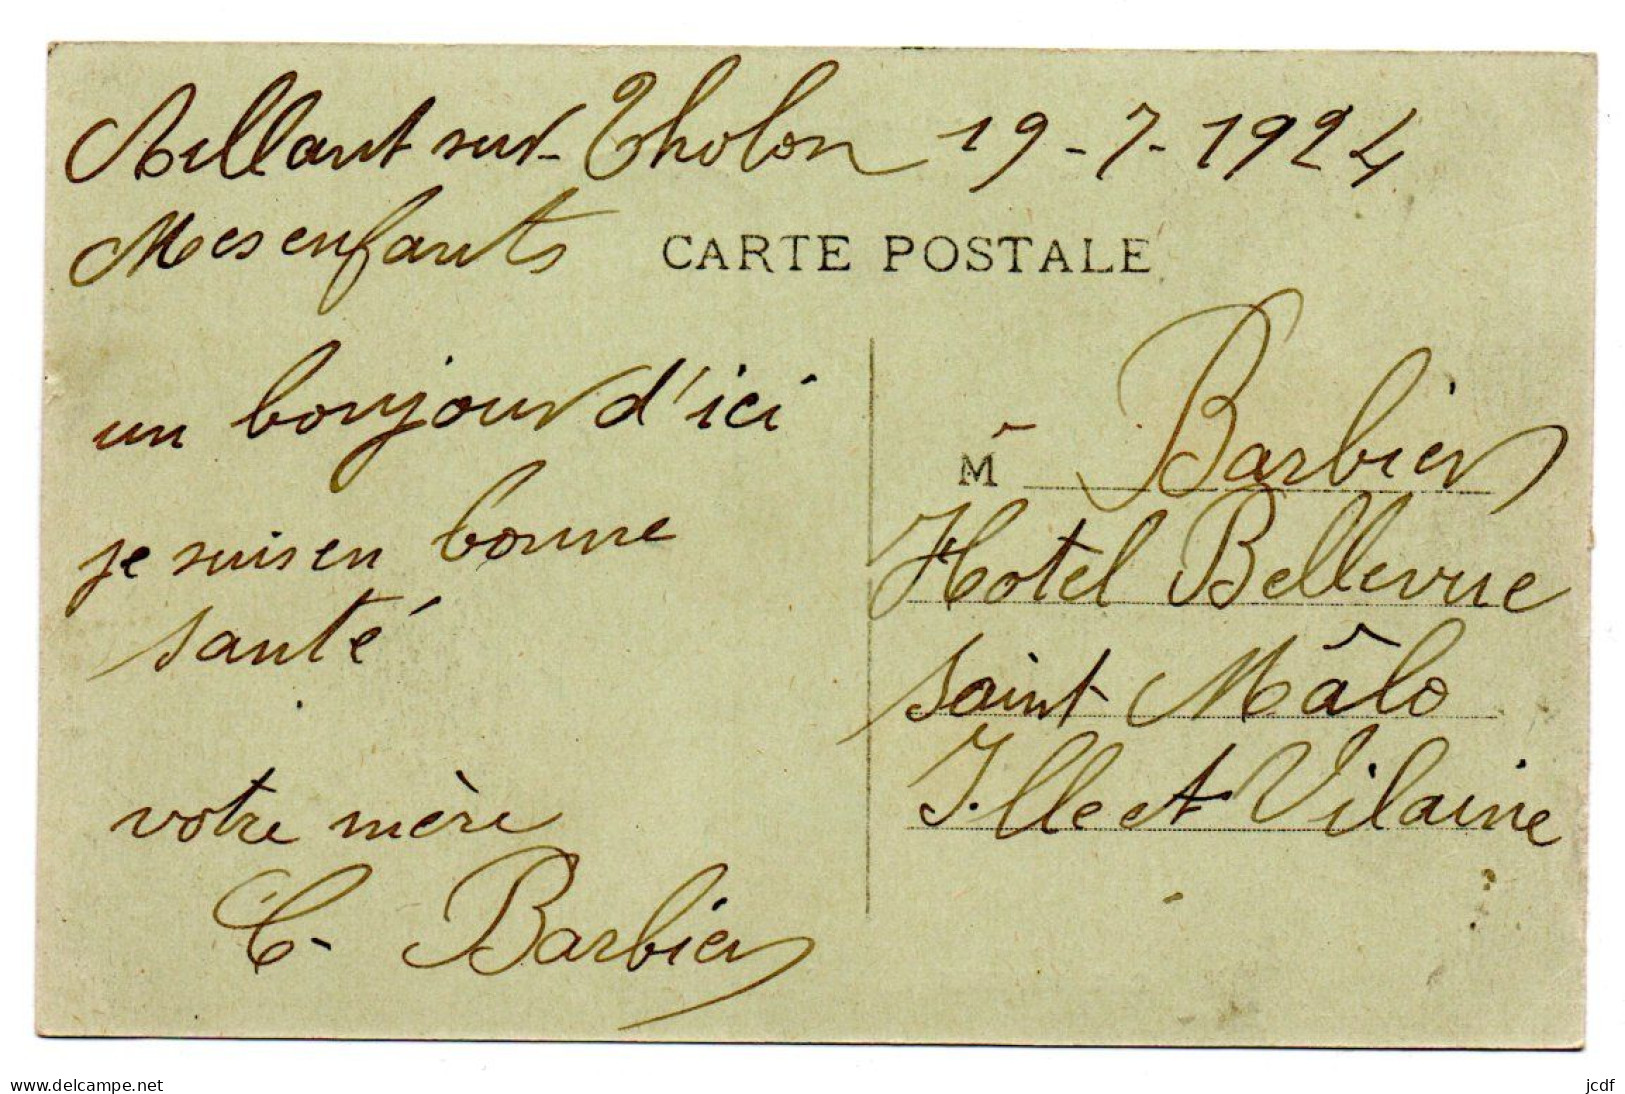 Aillant sur Tholon 19-7-1924
Mes enfants
CARTE POSTALE
un bonjour d'ici
je suis en bonne
santé
votre mère
C. Barbier
Mr Barbier
Hotel Bellevue
Saint Mâlo
Ille et Vilaine
www.delcampe.net
jcdf